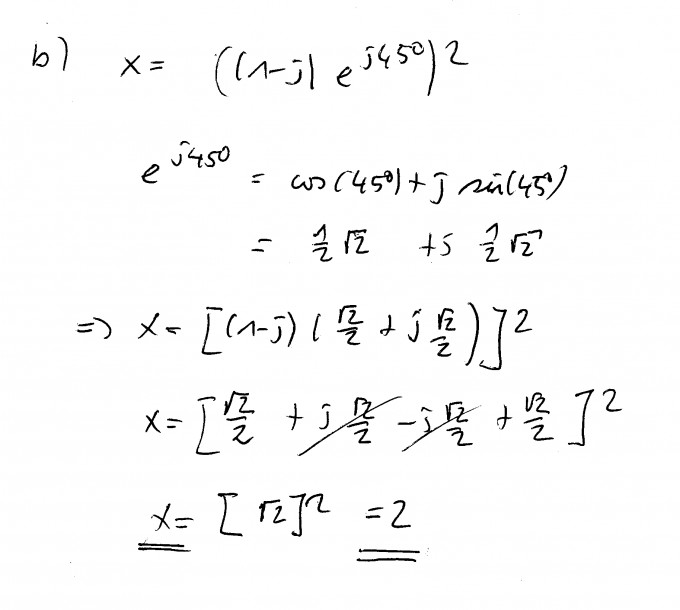 b) x = ((1-j) e^{j45°})^2
e^{j45°} = cos(45°) + j sin(45°)
= 1/2 √2 + j 1/2 √2
=> x = [(1-j) (√2/2 + j √2/2)]^2
x = [√2/2 + j √2/2 - j √2/2 + √2/2]^2
x = [√2]^2 = 2